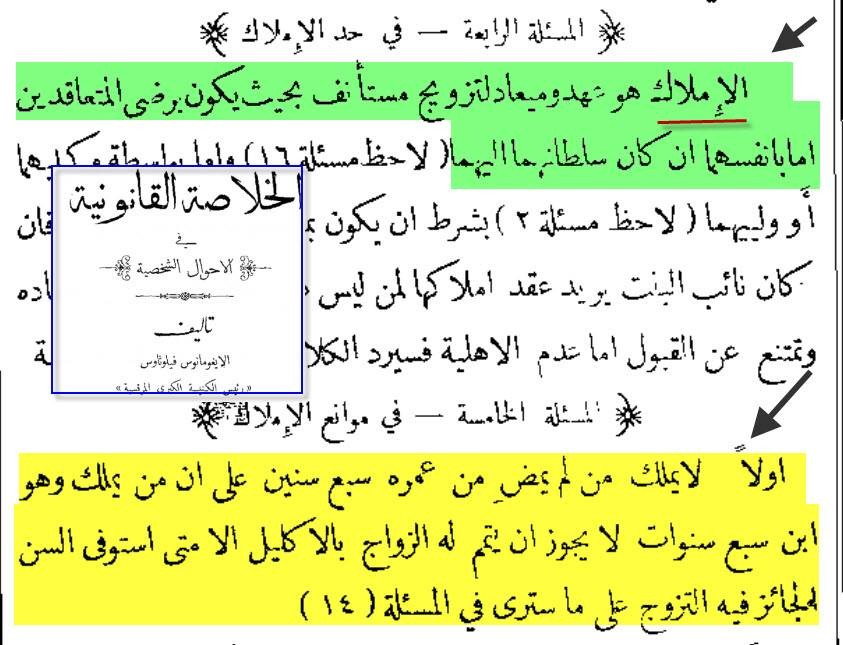 ﴿ المسئلة الرابعة — في حد الإملاك ﴾
الإملاك هو عهد وميعاد لتزويج مستأنف بحيث يكون برضى المتعاقدين
اما بانفسهما ان كان سلطانهما اليهما ( لاحظ مسئلة ١٦ ) واما بواسطة وكيليهما
أو ولييهما ( لاحظ مسئلة ٢ ) بشرط ان يكون فان
كان نائب البنت يريد عقد املاكها لمن ليس
وتمتنع عن القبول اما عدم الاهلية فسيرد
الخلاصة القانونية
في
الاحوال الشخصية
تأليف
الايغومانوس فيلوثاوس
« رئيس الكنيسة الكبرى المرقسية »
﴿ المسئلة الخامسة — في موانع الإملاك ﴾
اولاً لا يملك من لم يمض من عمره سبع سنين على ان من يملك وهو
ابن سبع سنوات لا يجوز ان يتم له الزواج بالاكليل الا متى استوفى السن
الجائز فيه التزوج على ما سترى في المسئلة ( ١٤ )